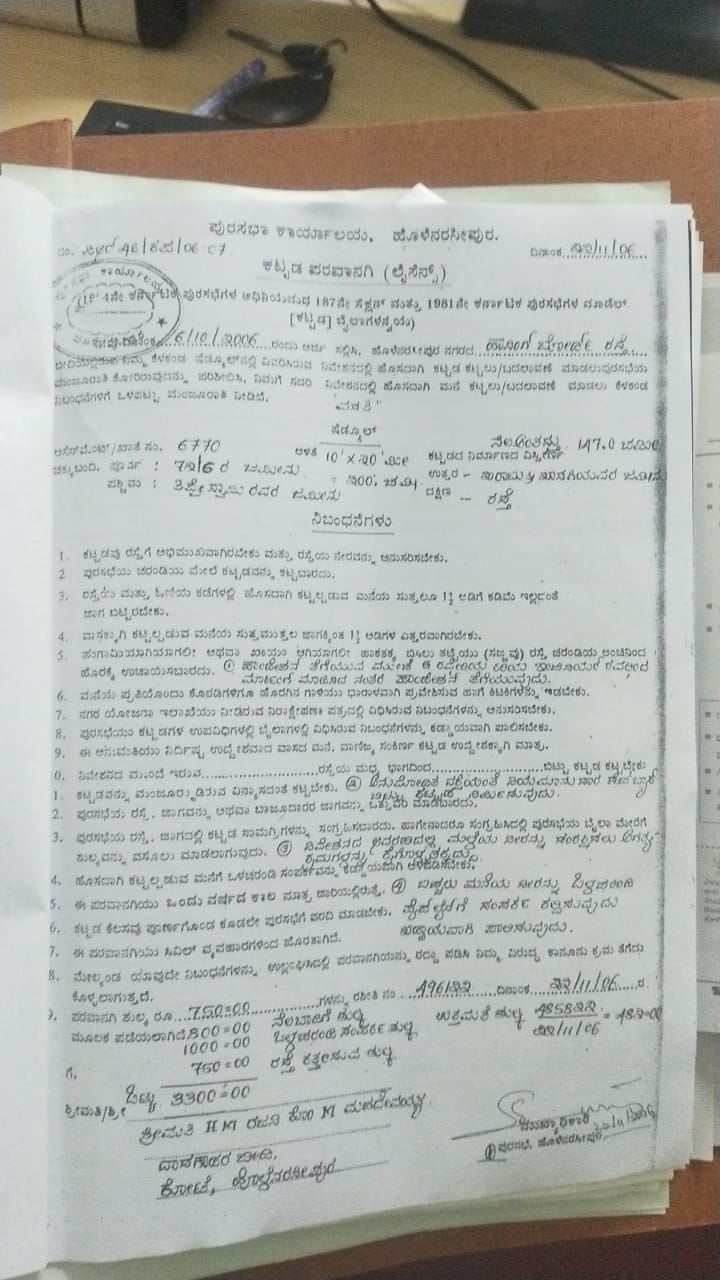 ಪುರಸಭಾ ಕಾರ್ಯಾಲಯ, ಹೊಳೆನರಸೀಪುರ.
ನಂ. 46/ಕಪ/06-07 ದಿನಾಂಕ 22/11/06
ಕಟ್ಟಡ ಪರವಾನಗಿ (ಲೈಸೆನ್ಸ್)
ಕರ್ನಾಟಕ ಪುರಸಭೆಗಳ ಅಧಿನಿಯಮದ 187ನೇ ಸೆಕ್ಷನ್ ಮತ್ತು 1981ನೇ ಕರ್ನಾಟಕ ಪುರಸಭೆಗಳ ಮಾಡೆಲ್
[ಕಟ್ಟಡ] ಬೈಲಾಗಳನ್ವಯ)
6/10/2006 ರಂದು ಅರ್ಜಿ ಸಲ್ಲಿಸಿ, ಹೊಳೆನರಸೀಪುರ ನಗರದ ರಸ್ತೆ
ಬೀದಿಯಲ್ಲಿರುವ ನಿಮ್ಮ ಕೆಳಕಂಡ ಷೆಡ್ಯೂಲ್‌ನಲ್ಲಿ ವಿವರಿಸಿರುವ ನಿವೇಶನದಲ್ಲಿ ಹೊಸದಾಗಿ ಕಟ್ಟಡ ಕಟ್ಟಲು/ಬದಲಾವಣೆ ಮಾಡಲು ಪುರಸಭೆಯ
ಮಂಜೂರಾತಿ ಕೋರಿರುವುದನ್ನು ಪರಿಶೀಲಿಸಿ, ನಿಮಗೆ ಸದರಿ ನಿವೇಶನದಲ್ಲಿ ಹೊಸದಾಗಿ ಮನೆ ಕಟ್ಟಲು/ಬದಲಾವಣೆ ಮಾಡಲು ಕೆಳಕಂಡ
ನಿಬಂಧನೆಗಳಿಗೆ ಒಳಪಟ್ಟು ಮಂಜೂರಾತಿ ನೀಡಿದೆ.
"ವಸತಿ"
ಷೆಡ್ಯೂಲ್
ಅಸೆಸ್‌ಮೆಂಟ್/ಖಾತೆ ನಂ. 6770 ಅಳತೆ 10 X 20 ಮೀ ಕಟ್ಟಡದ ನಿರ್ಮಾಣದ ವಿಸ್ತೀರ್ಣ ನೆಲಅಂತಸ್ತು 147.0 ಚಮೀ
ಚಕ್ಕುಬಂದಿ, ಪೂರ್ವ : 72/6 ರ ಜಮೀನು = 200 ಚಮೀ ಉತ್ತರ - ಜಮೀನು
ಪಶ್ಚಿಮ : ಜಮೀನು ದಕ್ಷಿಣ - ರಸ್ತೆ
ನಿಬಂಧನೆಗಳು
1. ಕಟ್ಟಡವು ರಸ್ತೆಗೆ ಅಭಿಮುಖವಾಗಿರಬೇಕು ಮತ್ತು ರಸ್ತೆಯ ನೇರವನ್ನು ಅನುಸರಿಸಬೇಕು.
2 ಪುರಸಭೆಯ ಚರಂಡಿಯ ಮೇಲೆ ಕಟ್ಟಡವನ್ನು ಕಟ್ಟಬಾರದು.
3. ರಸ್ತೆಯ ಮತ್ತು ಓಣಿಯ ಕಡೆಗಳಲ್ಲಿ ಹೊಸದಾಗಿ ಕಟ್ಟಲ್ಪಡುವ ಮನೆಯ ಸುತ್ತಲೂ 1½ ಅಡಿಗೆ ಕಡಿಮೆ ಇಲ್ಲದಂತೆ
ಜಾಗ ಬಿಟ್ಟಿರಬೇಕು.
4. ವಾಸಕ್ಕಾಗಿ ಕಟ್ಟಲ್ಪಡುವ ಮನೆಯ ಸುತ್ತಮುತ್ತಲ ಜಾಗಕ್ಕಿಂತ 1½ ಅಡಿಗಳ ಎತ್ತರವಾಗಿರಬೇಕು.
5. ಹಂಗಾಮಿಯಾಗಿಯಾಗಲಿ ಅಥವಾ ಖಾಯಂ ಆಗಿಯಾಗಲಿ ಹಾಕತಕ್ಕ ಬಿಸಿಲು ತಟ್ಟಿಯು (ಸಜ್ಜವು) ರಸ್ತೆ ಚರಂಡಿಯ ಅಂಚಿನಿಂದ
ಹೊರಕ್ಕೆ ಉಚಾಯಿಸಬಾರದು. ① ಪಾಯ ತೆಗೆಯುವ ಮುಂಚೆ ಈ ಕಛೇರಿಯ
6. ಮನೆಯ ಪ್ರತಿಯೊಂದು ಕೊಠಡಿಗಳಿಗೂ ಹೊರಗಿನ ಗಾಳಿಯು ಧಾರಾಳವಾಗಿ ಪ್ರವೇಶಿಸುವ ಹಾಗೆ ಕಿಟಕಿಗಳನ್ನು ಇಡಬೇಕು.
7. ನಗರ ಯೋಜನಾ ಇಲಾಖೆಯು ನೀಡಿರುವ ನಿರಾಕ್ಷೇಪಣಾ ಪತ್ರದಲ್ಲಿ ವಿಧಿಸಿರುವ ನಿಬಂಧನೆಗಳನ್ನು ಅನುಸರಿಸಬೇಕು.
8. ಪುರಸಭೆಯು ಕಟ್ಟಡಗಳ ಉಪವಿಧಿಗಳಲ್ಲಿ ಬೈಲಾಗಳಲ್ಲಿ ವಿಧಿಸಿರುವ ನಿಬಂಧನೆಗಳನ್ನು ಕಡ್ಡಾಯವಾಗಿ ಪಾಲಿಸಬೇಕು.
9. ಈ ಅನುಮತಿಯು ನಿರ್ದಿಷ್ಟ ಉದ್ದೇಶವಾದ ವಾಸದ ಮನೆ, ವಾಣಿಜ್ಯ ಸಂಕೀರ್ಣ ಕಟ್ಟಡ ಉದ್ದೇಶಕ್ಕಾಗಿ ಮಾತ್ರ.
0. ನಿವೇಶನದ ಮುಂದೆ ಇರುವ..........ರಸ್ತೆಯ ಮಧ್ಯ ಭಾಗದಿಂದ..........ಬಿಟ್ಟು ಕಟ್ಟಡ ಕಟ್ಟಬೇಕು
1. ಕಟ್ಟಡವನ್ನು ಮಂಜೂರ್ಮಾಡಿರುವ ವಿನ್ಯಾಸದಂತೆ ಕಟ್ಟಬೇಕು. ② ಅನುಮೋದಿತ ನಕ್ಷೆಯಂತೆ ನಿಯಮಾನುಸಾರ
2. ಪುರಸಭೆಯ ರಸ್ತೆ, ಜಾಗವನ್ನು ಅಥವಾ ಬಾಜೂದಾರರ ಜಾಗವನ್ನು ಒತ್ತುವರಿ ಮಾಡಬಾರದು.
3. ಪುರಸಭೆಯ ರಸ್ತೆ, ಜಾಗದಲ್ಲಿ ಕಟ್ಟಡ ಸಾಮಗ್ರಿಗಳನ್ನು ಸಂಗ್ರಹಿಸಬಾರದು. ಹಾಗೇನಾದರೂ ಸಂಗ್ರಹಿಸಿದಲ್ಲಿ ಪುರಸಭೆಯ ಬೈಲಾ ಮೇರೆಗೆ
ಶುಲ್ಕವನ್ನು ವಸೂಲು ಮಾಡಲಾಗುವುದು. ③ ನಿವೇಶನದ ಆವರಣದಲ್ಲಿ ಮಳೆಯ ನೀರನ್ನು ಸಂರಕ್ಷಿಸಲು ಅಗತ್ಯ
ಕ್ರಮಗಳನ್ನು ಕೈಗೊಳ್ಳತಕ್ಕದ್ದು.
4. ಹೊಸದಾಗಿ ಕಟ್ಟಲ್ಪಡುವ ಮನೆಗೆ ಒಳಚರಂಡಿ ಸಂಪರ್ಕವನ್ನು ಕಡ್ಡಾಯವಾಗಿ ಅಳವಡಿಸಬೇಕು.
5. ಈ ಪರವಾನಗಿಯು ಒಂದು ವರ್ಷದ ಕಾಲ ಮಾತ್ರ ಜಾರಿಯಲ್ಲಿರುತ್ತೆ. ④ ಮನೆಯ ನೀರನ್ನು ಒಳಚರಂಡಿ
6. ಕಟ್ಟಡ ಕೆಲಸವು ಪೂರ್ಣಗೊಂಡ ಕೂಡಲೇ ಪುರಸಭೆಗೆ ವರದಿ ಮಾಡಬೇಕು. ಪೈಪ್‌ಲೈನ್‌ಗೆ ಸಂಪರ್ಕ ಕಲ್ಪಿಸುವುದು
7. ಈ ಪರವಾನಗಿಯು ಸಿವಿಲ್ ವ್ಯವಹಾರಗಳಿಂದ ಹೊರತಾಗಿದೆ. ಕಡ್ಡಾಯವಾಗಿ ಪಾಲಿಸುವುದು.
8. ಮೇಲ್ಕಂಡ ಯಾವುದೇ ನಿಬಂಧನೆಗಳನ್ನು ಉಲ್ಲಂಘಿಸಿದಲ್ಲಿ ಪರವಾನಗಿಯನ್ನು ರದ್ದು ಪಡಿಸಿ ನಿಮ್ಮ ವಿರುದ್ಧ ಕಾನೂನು ಕ್ರಮ ತೆಗೆದು
ಕೊಳ್ಳಲಾಗುತ್ತದೆ.
9. ಪರವಾನಗಿ ಶುಲ್ಕ ರೂ. 750=00 ಗಳನ್ನು ರಶೀತಿ ನಂ. 196122 ದಿನಾಂಕ 22/11/06 ರ
ಮೂಲಕ ಪಡೆಯಲಾಗಿದೆ. 800=00 ನೆಲಬಾಡಿಗೆ ಶುಲ್ಕ ಉತ್ತಮತೆ ಶುಲ್ಕ 485822 = 482=00
1000=00 ಒಳಚರಂಡಿ ಸಂಪರ್ಕ ಶುಲ್ಕ 22/11/06
750=00 ರಸ್ತೆ ಕತ್ತರಿಸುವ ಶುಲ್ಕ
ಗೆ,
ಒಟ್ಟು 3300=00
ಶ್ರೀಮತಿ/ಶ್ರೀ
ಶ್ರೀಮತಿ H M ರಜನಿ ಕೋಂ M ಮಹದೇವಯ್ಯ
ದಾಸಗೌಡರ ಬೀದಿ,
ಕೋಟೆ, ಹೊಳೆನರಸೀಪುರ
ಮುಖ್ಯಾಧಿಕಾರಿ
ಪುರಸಭೆ, ಹೊಳೆನರಸೀಪುರ